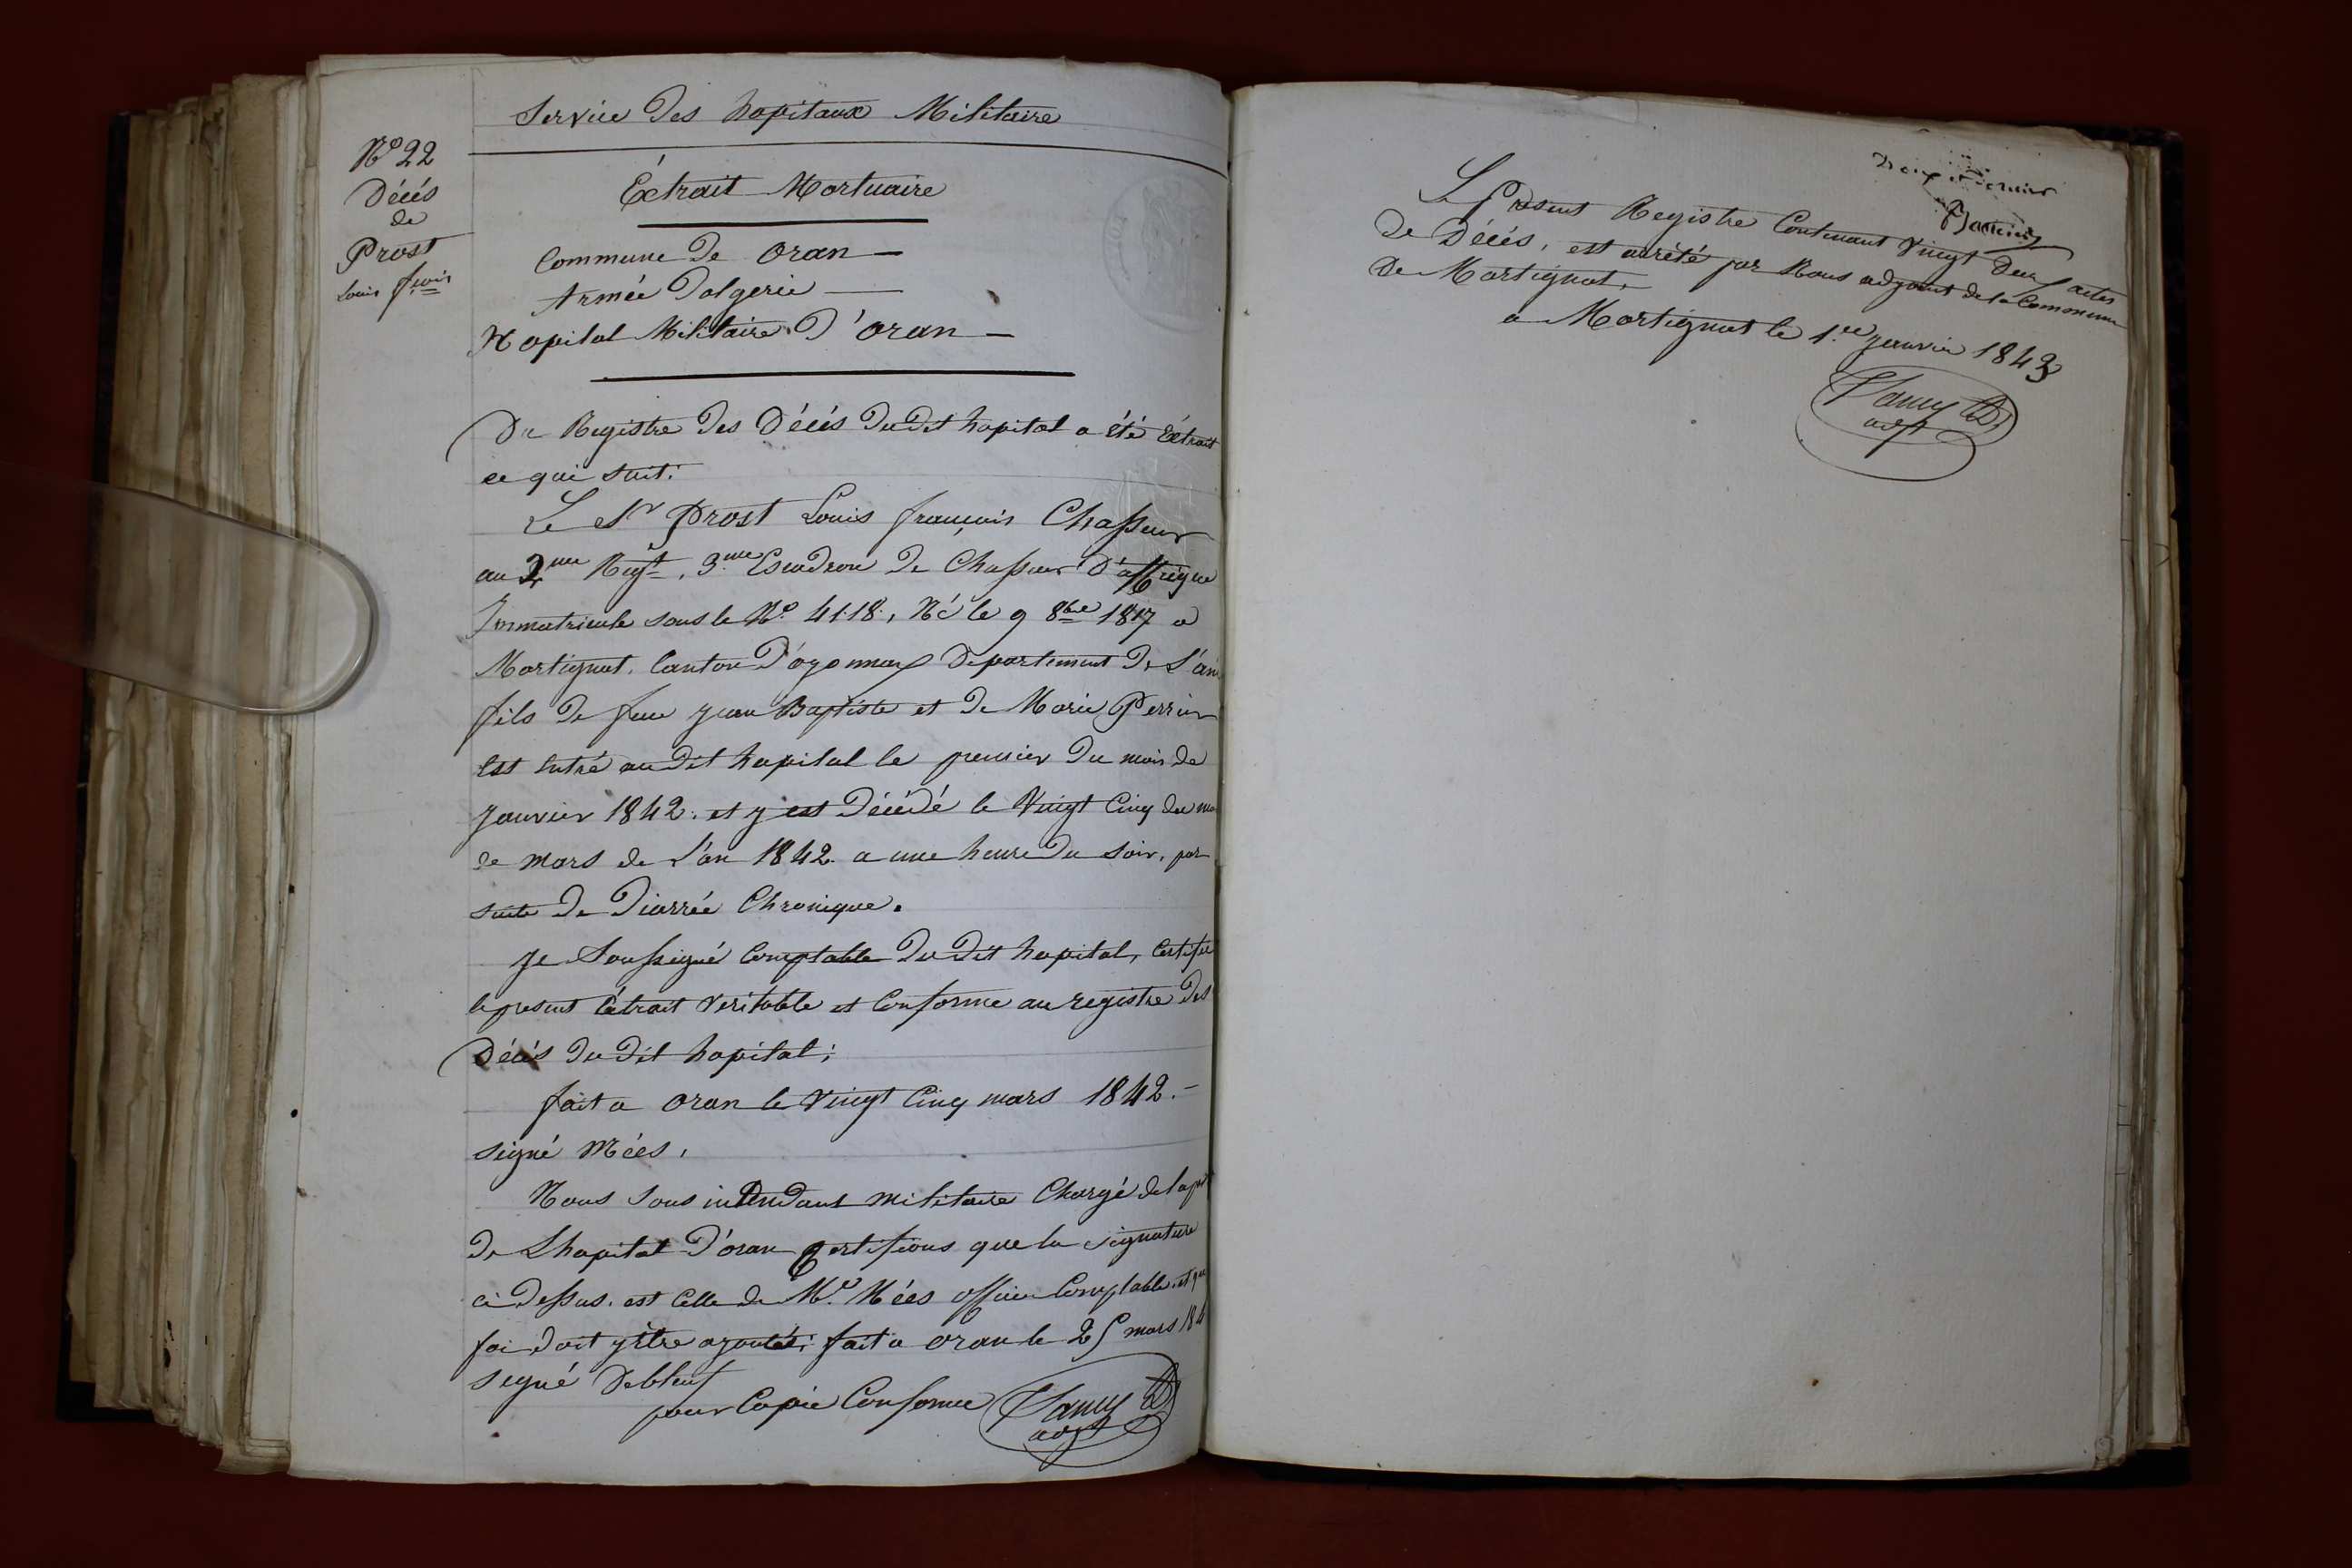 Service Des hopitaux Militaire
N° 22
Décés
de
Prost
Louis f.çois
Éxtrait Mortuaire
Commune De Oran —
Armée D'algerie —
Hopital Militaire D'oran —
Du Registre Des Décés Du Dit hopital a été Éxtrait
ce qui suit:
Le Sr Prost Louis françois Chasseur
au 2me Regt, 3.me Escadron De Chasseur D'affrique
Immatricule sous le N° 4118, Né le 9 8bre 1817 a
Martignat, Canton D'oyonnax Departement De L'ain
fils De feue jean Baptiste et De Marie Perrin
Est Entré au Dit hopital le premier Du mois de
janvier 1842. et y est Décédé le Vingt Cinq du
de mars de L'an 1842 a une heure Du soir, par
suite De Diarrée Chronique.
je Soussigné Comptable Du Dit hopital, Certifie
le present Extrait Veritable et Conforme au registre Des
Décés Du Dit hopital;
fait a oran le Vingt Cinq mars 1842. —
signé Mées,
Nous Sous intendant militaire Chargé de la
De Lhopital D'oran Certifions que la signature
ci Dessus. est Celle de Mr Mées officier Comptable et que
foi Doit y être ajoutée; fait a oran le 25 mars 184
signé
pour Copie Conforme
adjt
Le Present Registre Contenant Vingt Deux actes
De Décés, est arrêté par Nous adjoint de la Commune
De Martignat,
a Martignat le 1.er janvier 1843
adjt